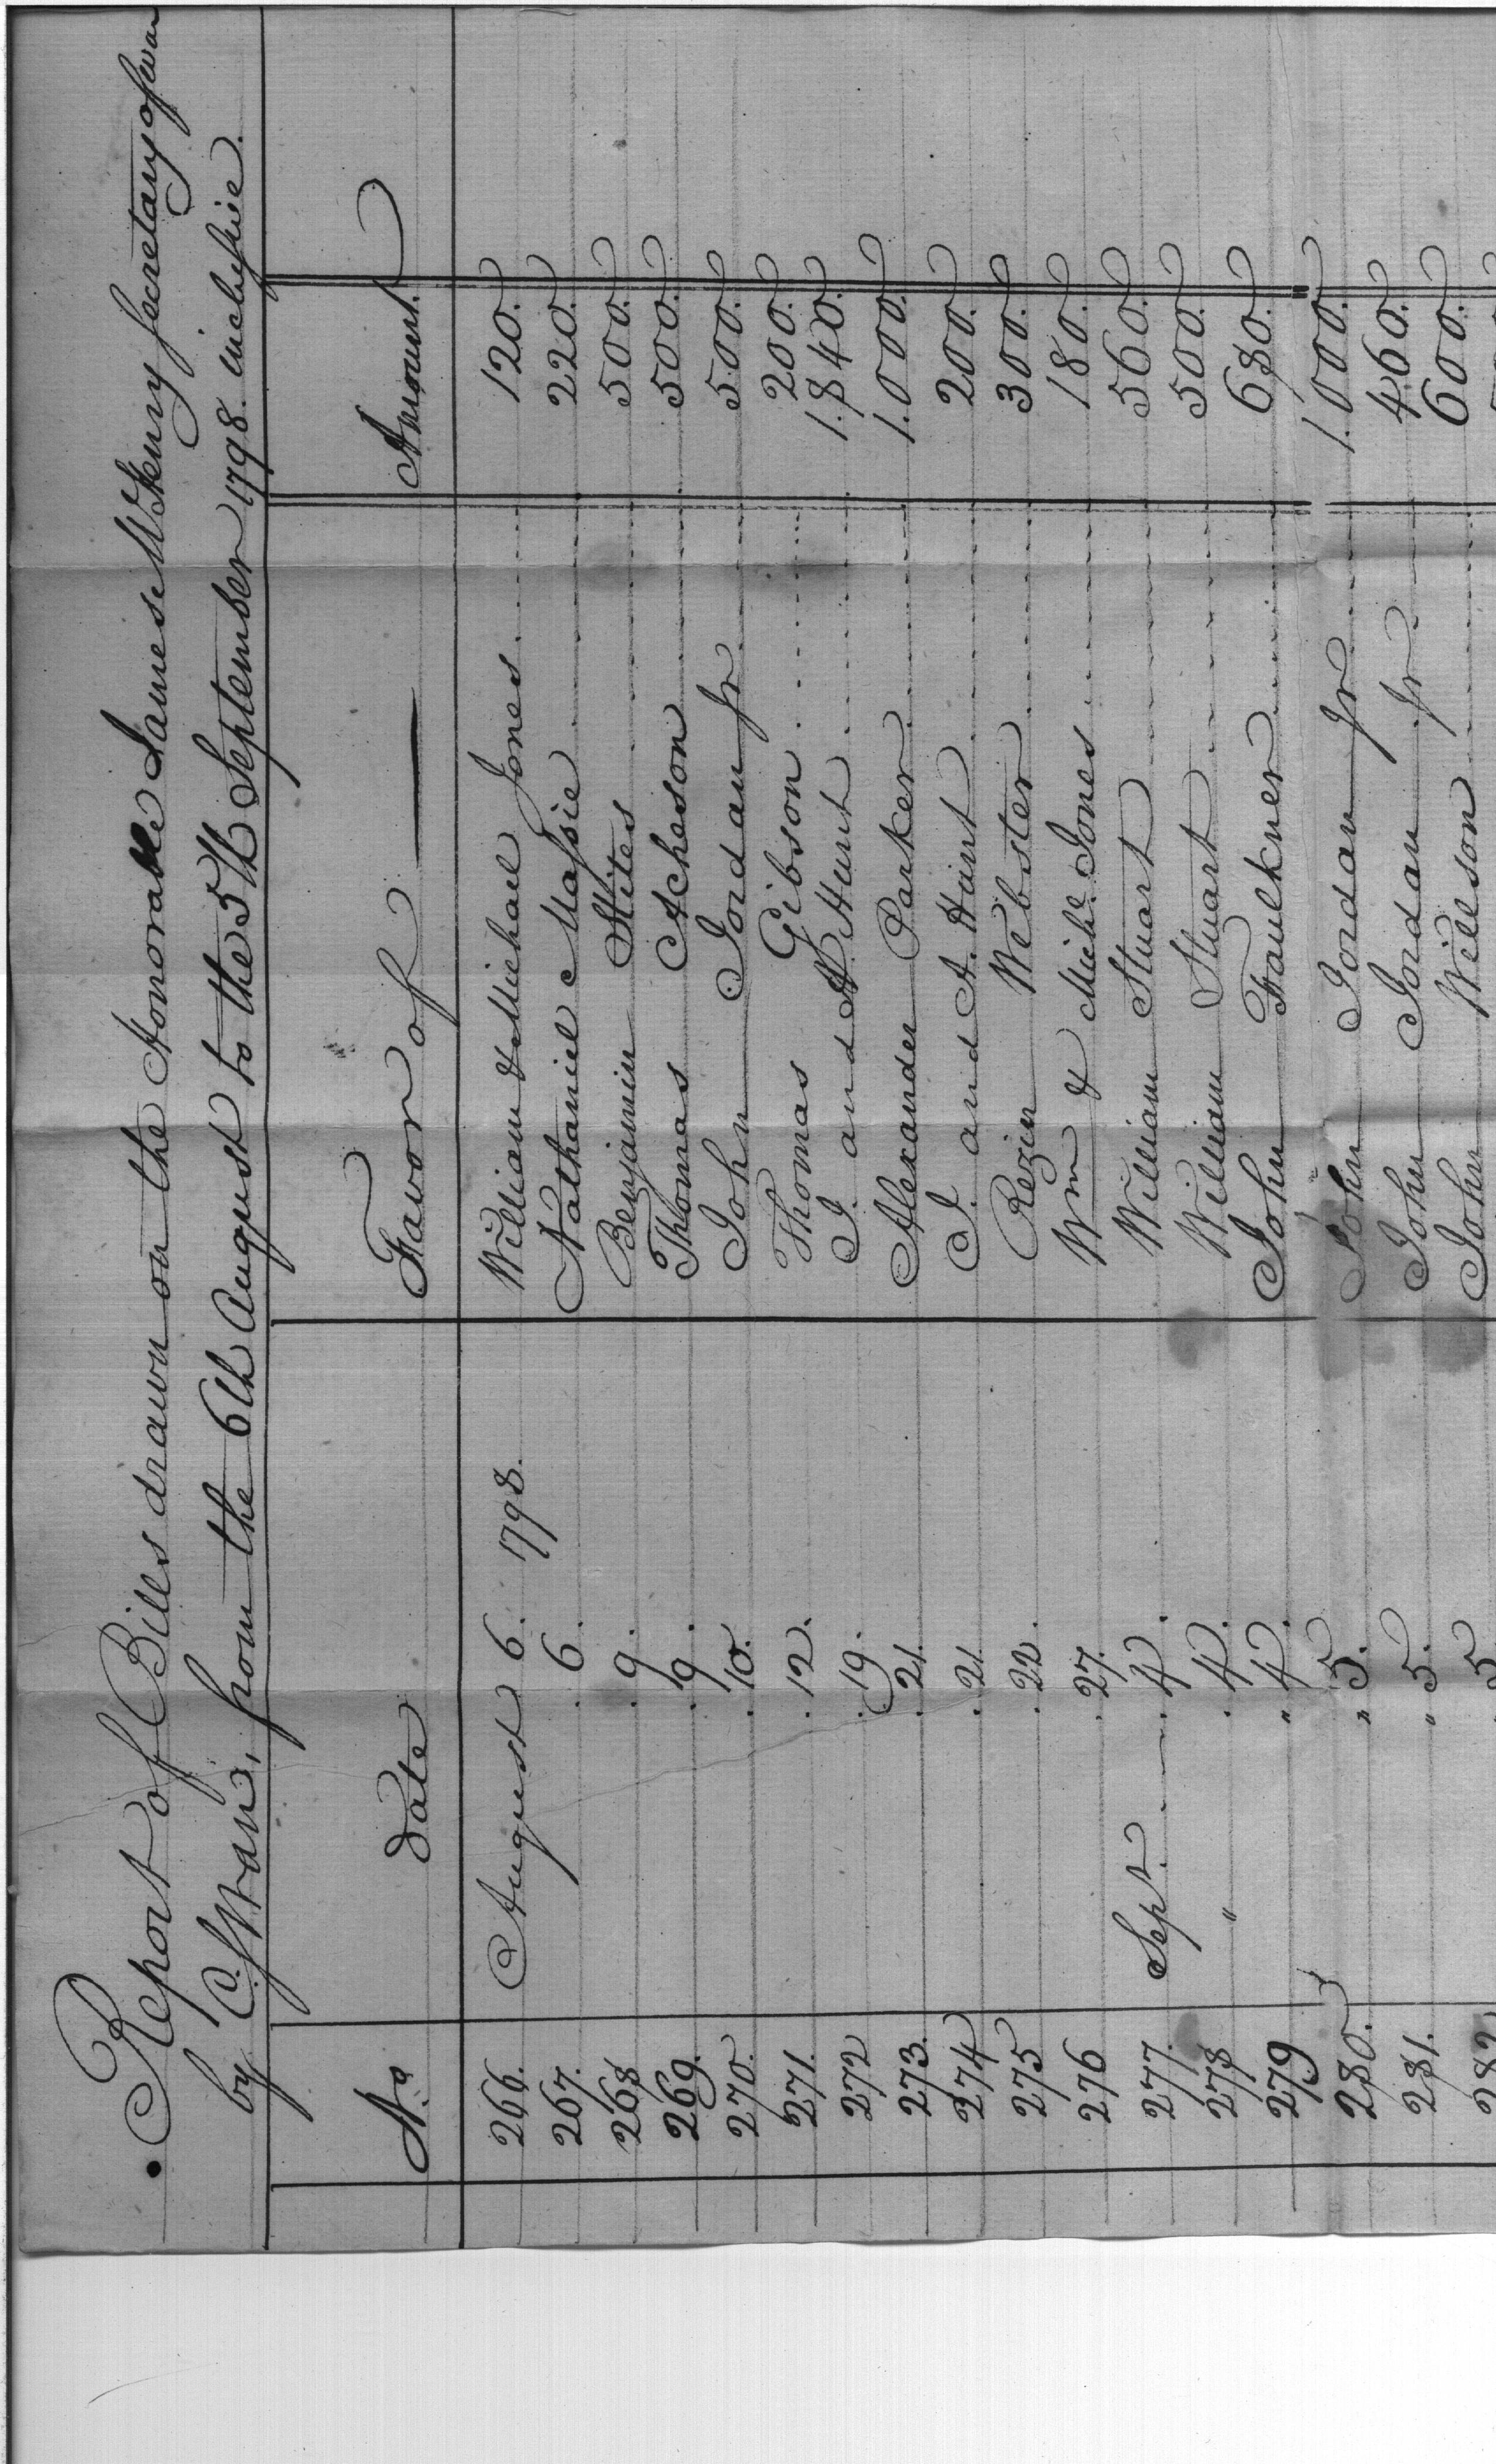 Report of Bills drawn on the Honorable James McHenry Secretary of War
by C. Swan, from the 6th August to the 5th September 1798. inclusive.
No Date Favor of Amount.
266. August 6. 1798. William & Michael Jones 120.
267. . 6. Nathaniel Massie 220.
268 . 9. Benjamin Stites 500.
269. . 9. Thomas Acheson 500.
270. . 10. John Jordan Jr. 500.
271. . 12. Thomas Gibson 200.
272 . 19. J. and A. Hunt 1.840.
273. . 21. Alexander Parker 1.000.
274 . 21. J. and A. Hunt 200.
275 . 22. Rezin Webster 300.
276 . 27. Wm & Michl. Jones 180.
277. Sept. 4. William Stuart 560.
278 " . 4. William Stuart 500.
279 " 4. John Faulkner 680.
280. " 5. John Jordan Jr 1.000.
281. " 5. John Jordan Jr. 460.
282 5 John Wilson 600.